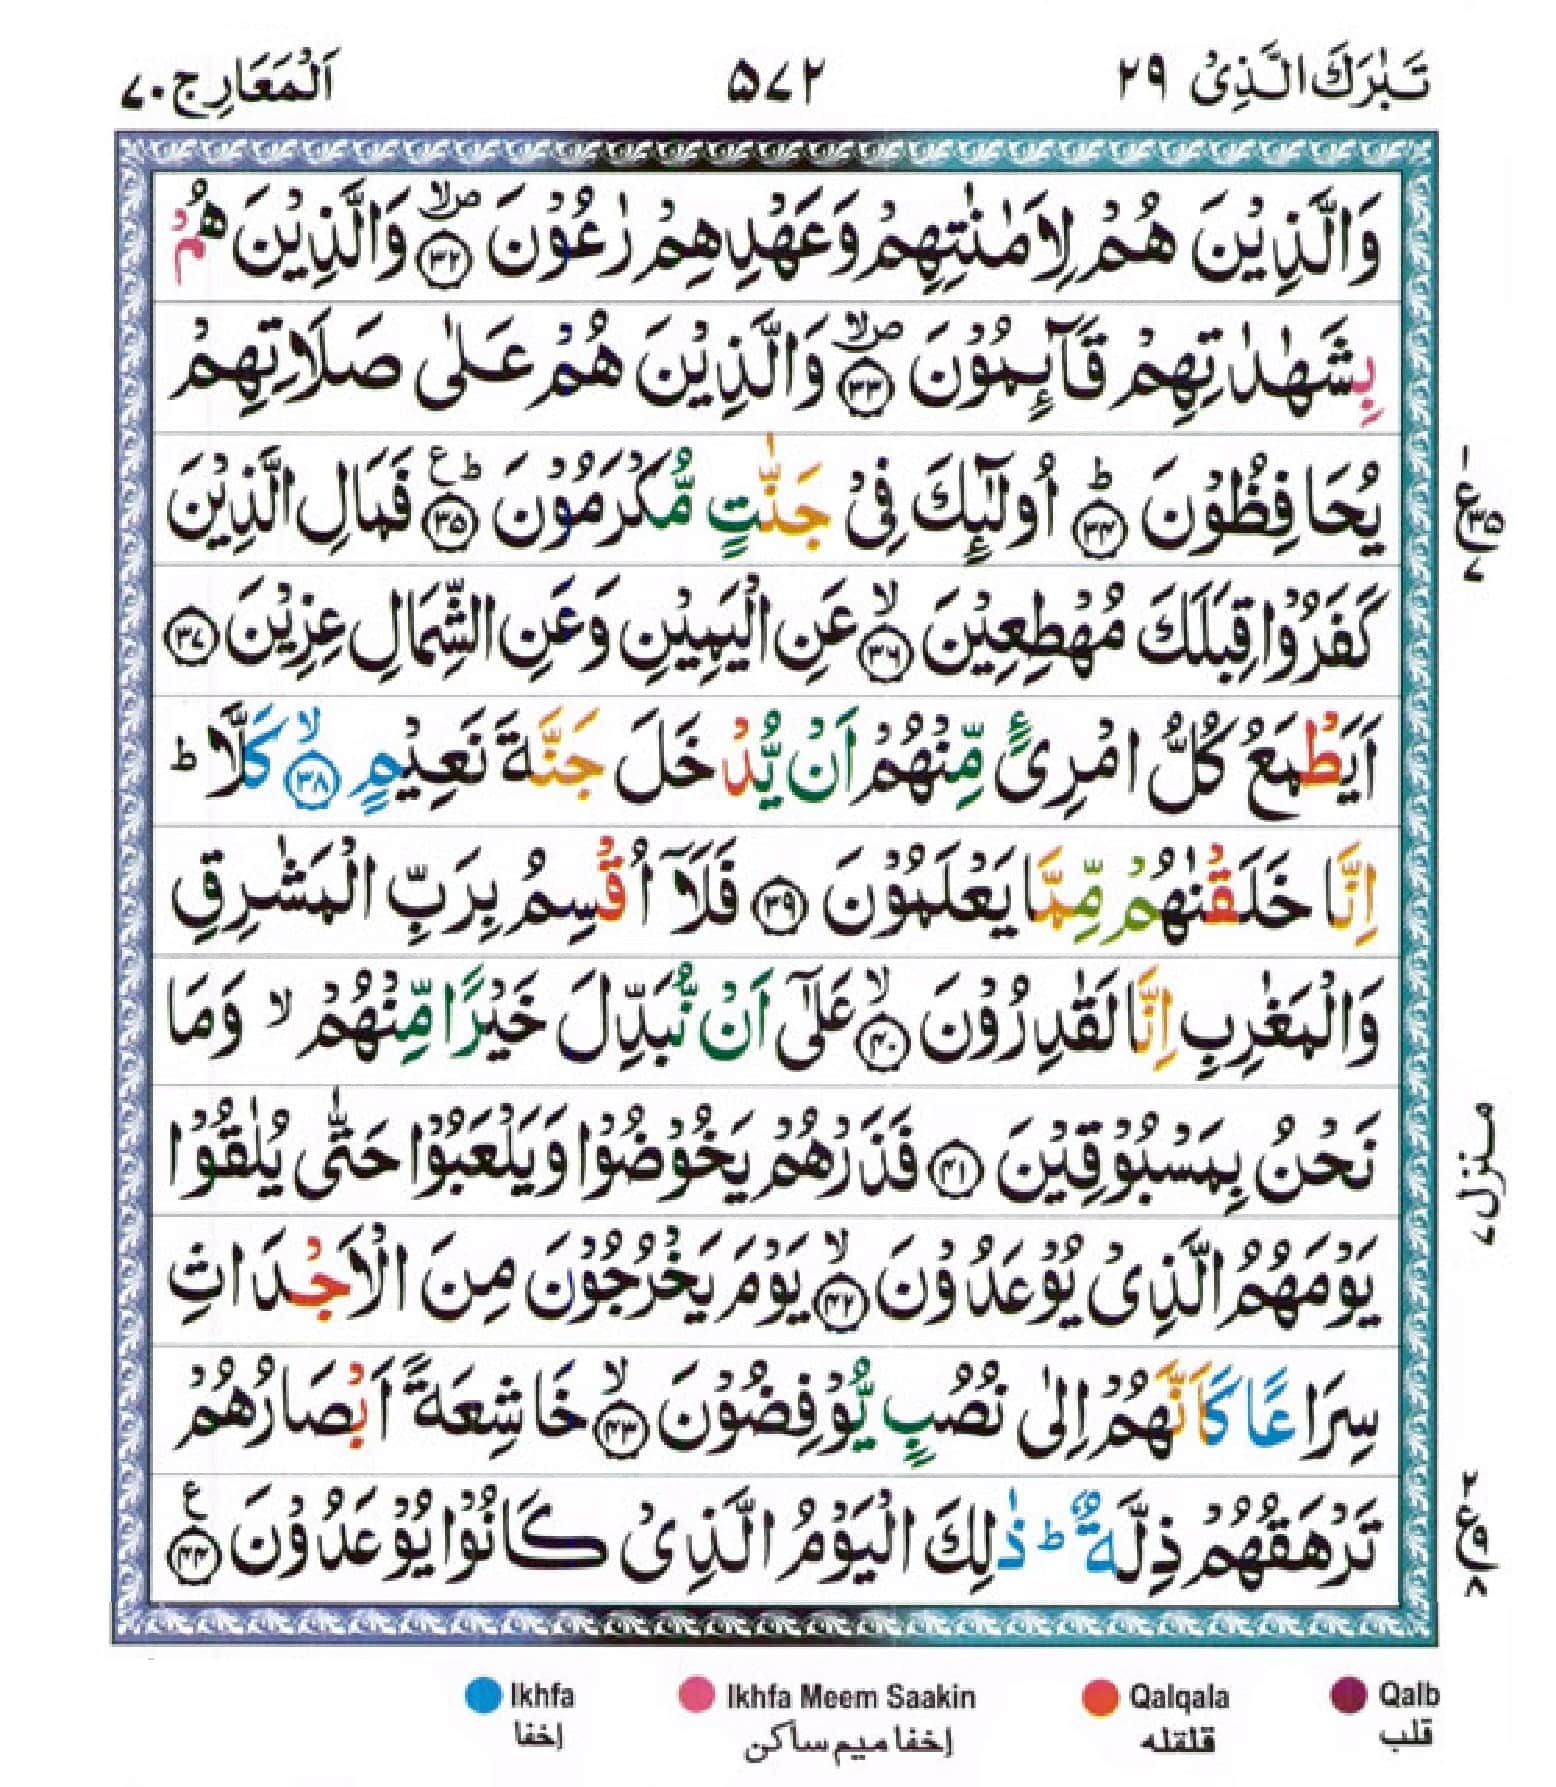 تَبٰرَكَ الَّذِیْ ٢٩
۵۷۲
اَلْمَعَارِج ۷۰
وَالَّذِیْنَ هُمْ لِاَمٰنٰتِهِمْ وَعَهْدِهِمْ رٰعُوْنَ ۝۳۲ صلا وَالَّذِیْنَ هُمْ
بِشَهٰدٰتِهِمْ قَآئِمُوْنَ ۝۳۳ صلا وَالَّذِیْنَ هُمْ عَلٰی صَلَاتِهِمْ
یُحَافِظُوْنَ ۝۳۴ؕ اُولٰٓئِكَ فِیْ جَنّٰتٍ مُّكْرَمُوْنَ ۝۳۵ؕ ع فَمَالِ الَّذِیْنَ
كَفَرُوْا قِبَلَكَ مُهْطِعِیْنَ ۝۳۶ۙ عَنِ الْیَمِیْنِ وَعَنِ الشِّمَالِ عِزِیْنَ ۝۳۷
اَیَطْمَعُ كُلُّ امْرِئٍ مِّنْهُمْ اَنْ یُّدْخَلَ جَنَّةَ نَعِیْمٍ ۝۳۸ۙ كَلَّا ؕ
اِنَّا خَلَقْنٰهُمْ مِّمَّا یَعْلَمُوْنَ ۝۳۹ فَلَاۤ اُقْسِمُ بِرَبِّ الْمَشٰرِقِ
وَالْمَغٰرِبِ اِنَّا لَقٰدِرُوْنَ ۝۴۰ۙ عَلٰۤی اَنْ نُّبَدِّلَ خَیْرًا مِّنْهُمْ ۙ وَمَا
نَحْنُ بِمَسْبُوْقِیْنَ ۝۴۱ فَذَرْهُمْ یَخُوْضُوْا وَیَلْعَبُوْا حَتّٰی یُلٰقُوْا
یَوْمَهُمُ الَّذِیْ یُوْعَدُوْنَ ۝۴۲ۙ یَوْمَ یَخْرُجُوْنَ مِنَ الْاَجْدَاثِ
سِرَاعًا كَاَنَّهُمْ اِلٰی نُصُبٍ یُّوْفِضُوْنَ ۝۴۳ۙ خَاشِعَةً اَبْصَارُهُمْ
تَرْهَقُهُمْ ذِلَّةٌ ؕ ذٰلِكَ الْیَوْمُ الَّذِیْ كَانُوْا یُوْعَدُوْنَ ۝۴۴ ع
۱ ع ۳۵ ۷
منزل ۷
۲ ع ۹ ۸
Ikhfa
إخفا
Ikhfa Meem Saakin
إخفا میم ساکن
Qalqala
قلقله
Qalb
قلب